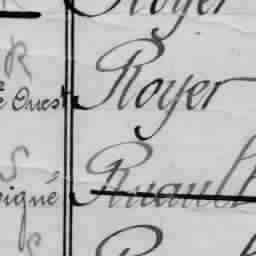 Royer
R
Ouest Royer
S
igné Ruault